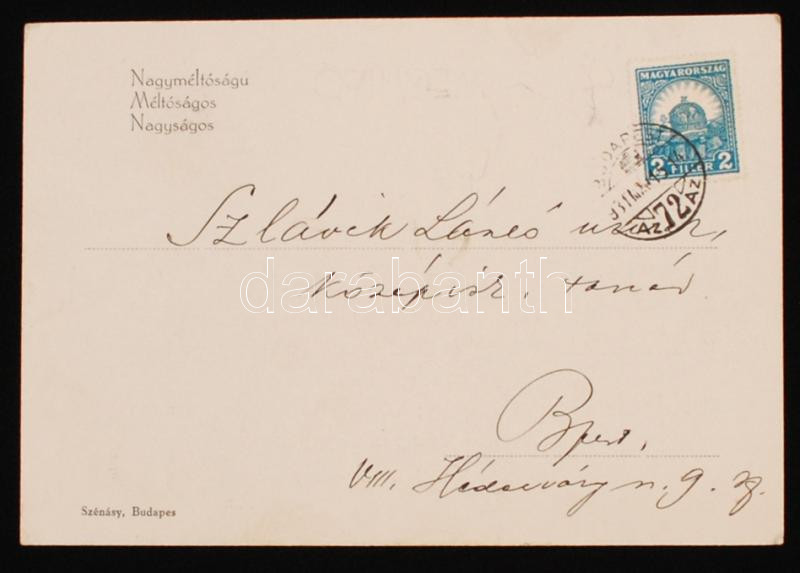 Nagyméltóságu
Méltóságos
Nagyságos
MAGYARORSZÁG
2 FILLÉR 2
BUDAPEST
72
Szlávik László
középisk. tanár
darabanth
Bpest,
VIII. n. 9. sz.
Szénásy, Budapest